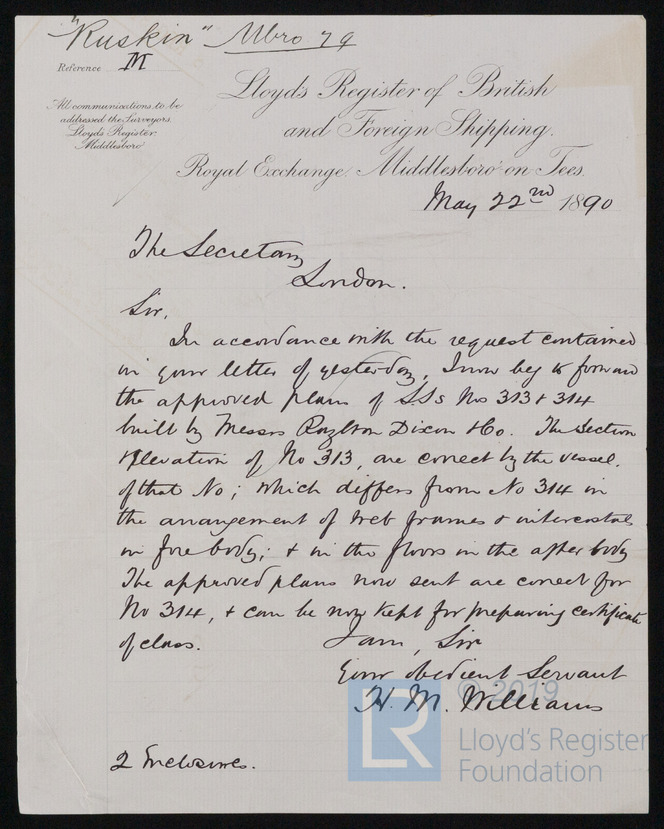 "Ruskin" Mbro 79
Reference M
All communications to be
addressed the Surveyors,
Lloyd's Register,
Middlesboro'
Lloyd's Register of British
and Foreign Shipping.
Royal Exchange Middlesboro'-on-Tees.
May 22nd 1890
The Secretary
London.
Sir,
In accordance with the request contained
in your letter of yesterday, I now beg to forward
the approved plans of S.S.s Nos 313 & 314
built by Messrs Raylton Dixon & Co. The section
& elevation of No 313, are correct by the vessel
of that No; which differs from No 314 in
the arrangement of web frames & intercostals
in fore body; & in the floors in the after body
The approved plans now sent are correct for
No 314, & can be now kept for preparing certificate
of class.
I am, Sir
Your obedient Servant
H. M. Williams
2 Enclosures.
© 2019
LR
Lloyd's Register
Foundation